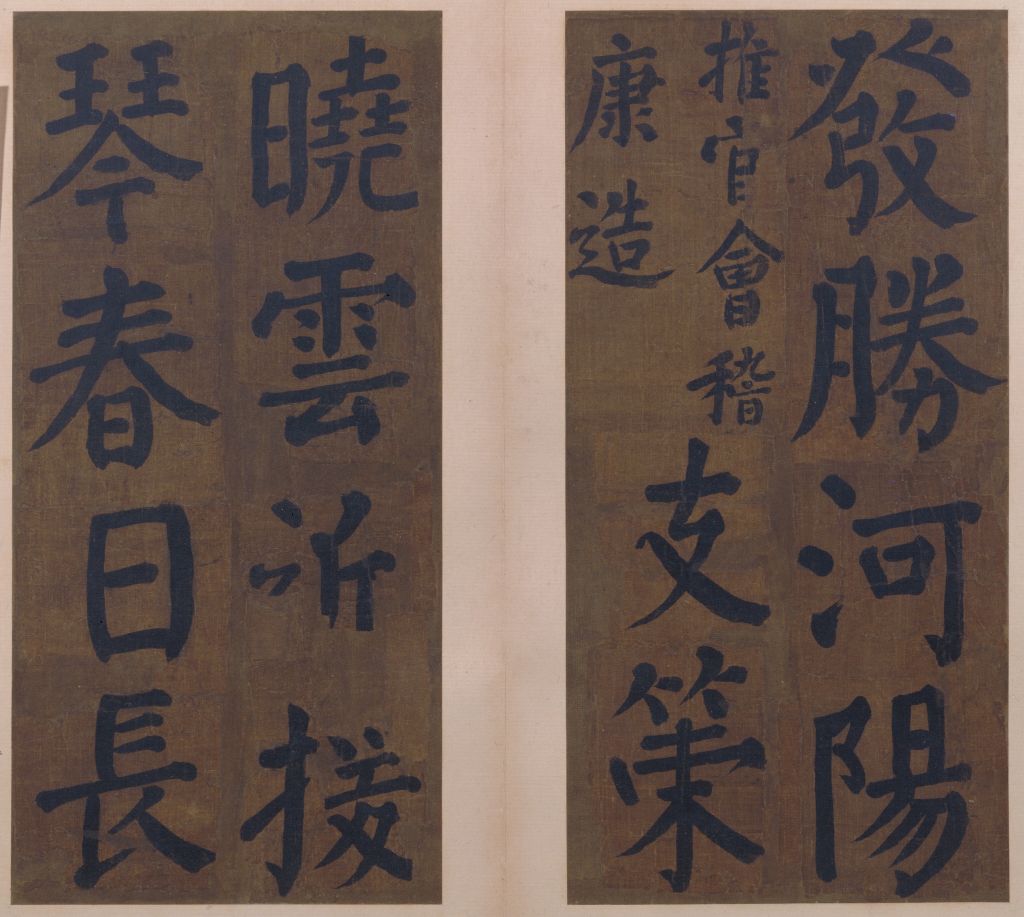 發勝河陽
推官會稽
康造
支策
曉雲近援
琴春日長